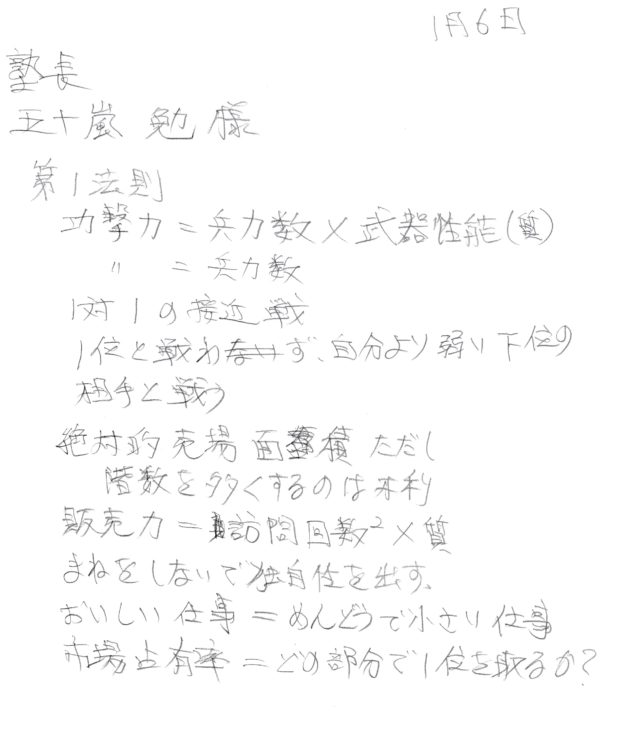 1月6日
塾長
五十嵐 勉 様
第1法則
功撃力=兵力数×武器性能(質)
〃 =兵力数
1対1の接近戦
1位と戦わず、自分より弱い下位の
相手と戦う
絶対的売場面積 ただし
階数を多くするのは不利
販売力=訪問回数²×質
まねをしないで独自性を出す。
おいしい仕事=めんどうで小さい仕事
市場占有率=どの部分で1位を取るか?